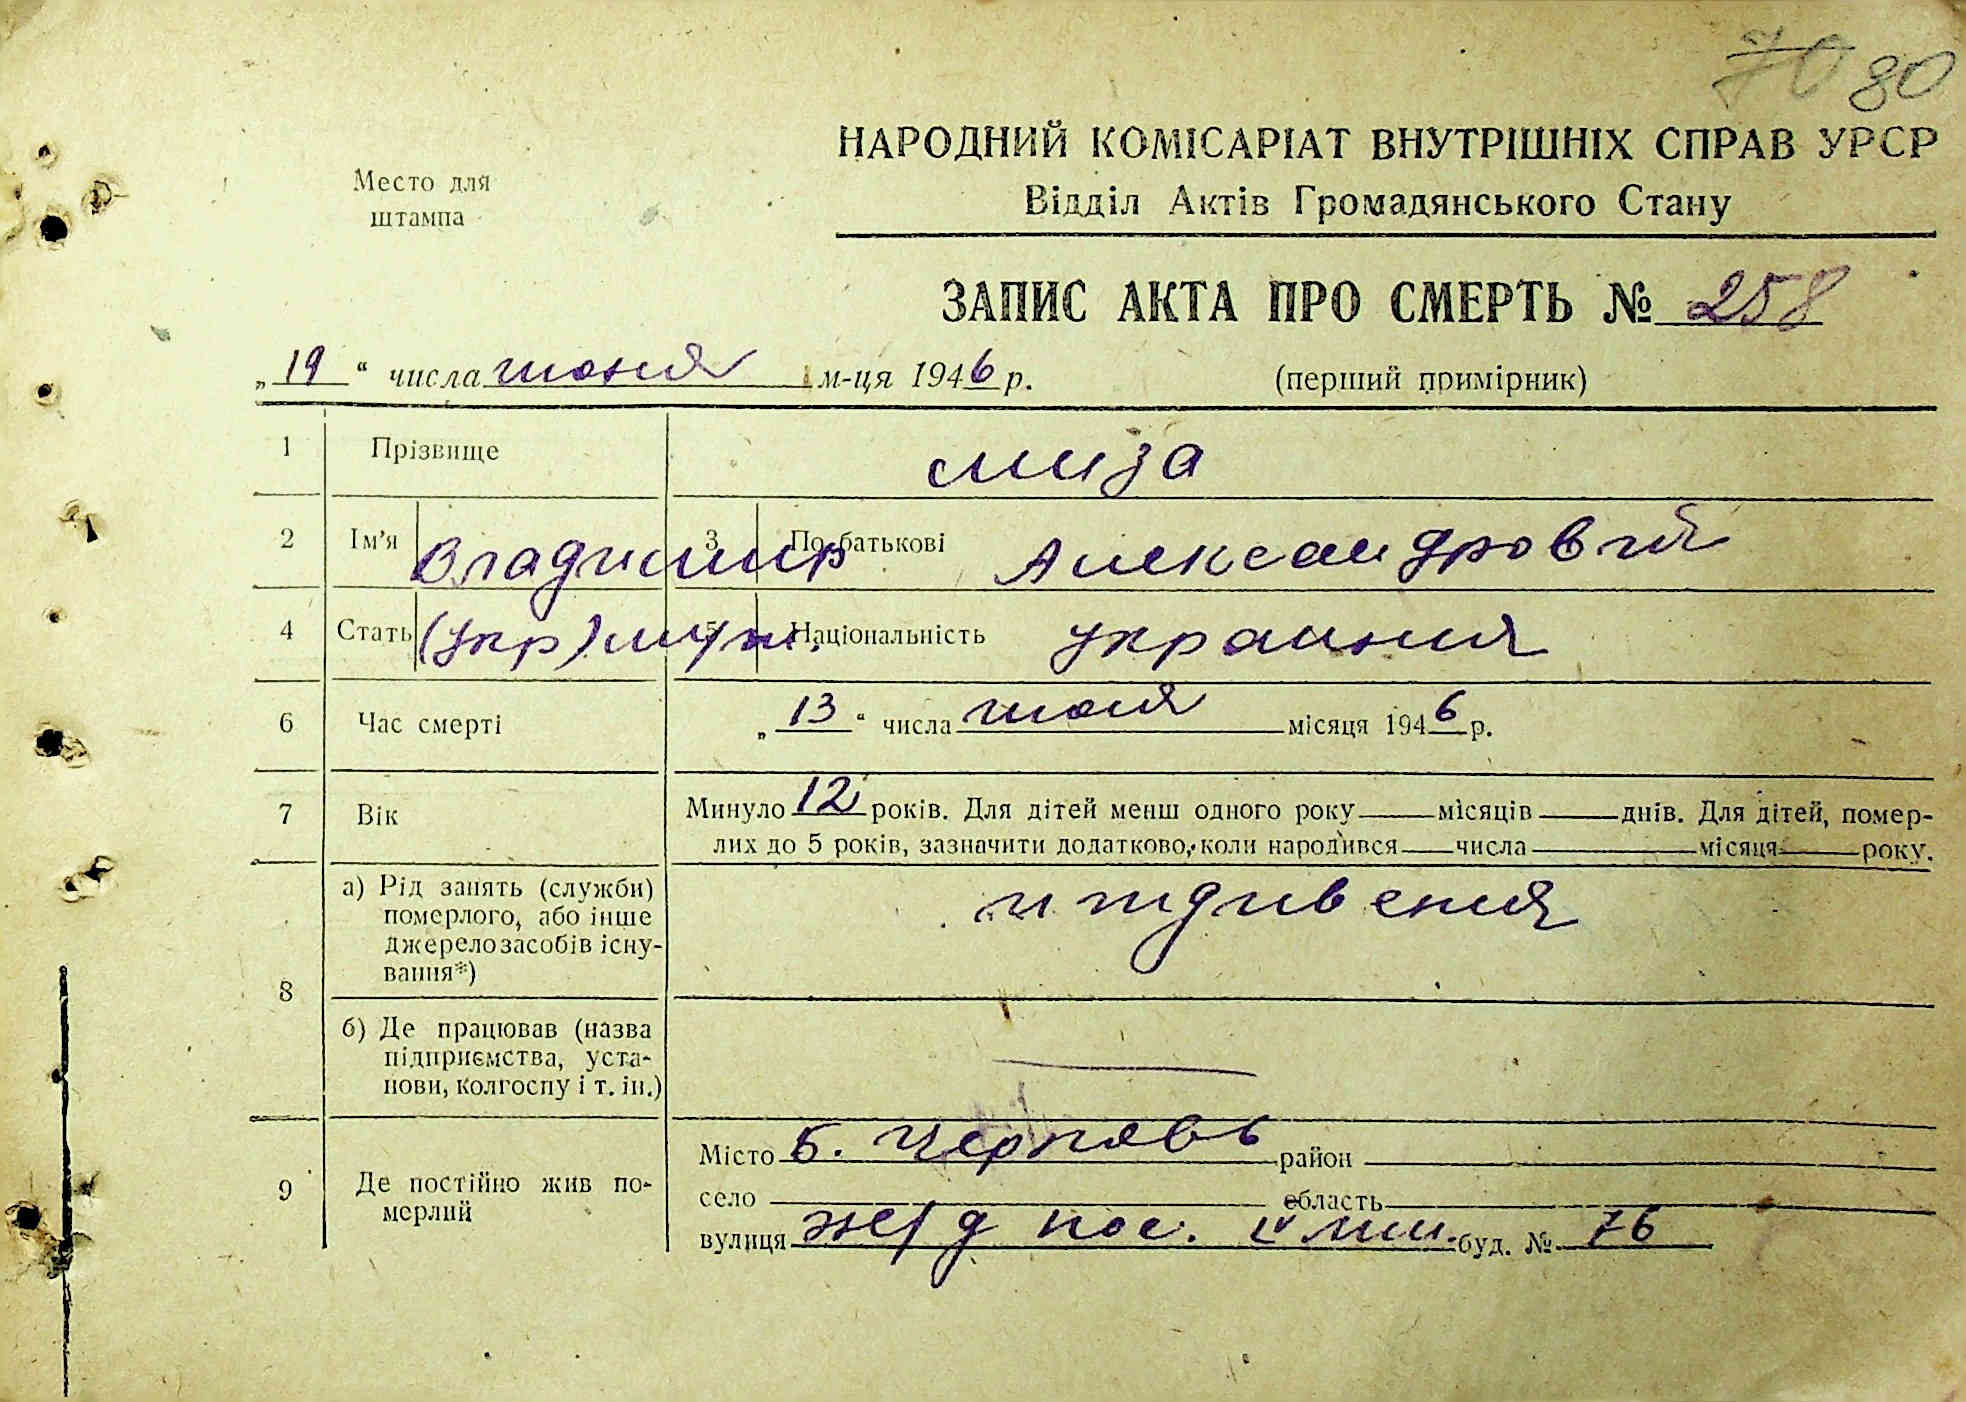 70 80
НАРОДНИЙ КОМІСАРІАТ ВНУТРІШНІХ СПРАВ УРСР
Место для штампа
Відділ Актів Громадянського Стану
ЗАПИС АКТА ПРО СМЕРТЬ № 258
„19“ числа июня м-ця 1946 р. (перший примірник)
1 Прізвище Миза
2 Ім'я Владимир 3 По батькові Александровий
4 Стать (укр) муж. 5 Національність украиния
6 Час смерті „13“ числа июня місяця 1946 р.
7 Вік Минуло 12 років. Для дітей менш одного року — місяців — днів. Для дітей, помер-
лих до 5 років, зазначити додатково, коли народився — числа — місяця — року.
8 а) Рід занять (служби)
померлого, або інше
джерело засобів існу-
вання*)
иждивения
б) Де працював (назва
підприємства, уста-
нови, колгоспу і т. ін.)
—
9 Де постійно жив по-
мерлий
Місто Б. район
село область
вулиця ж/д пос. IV лин. буд. № 76